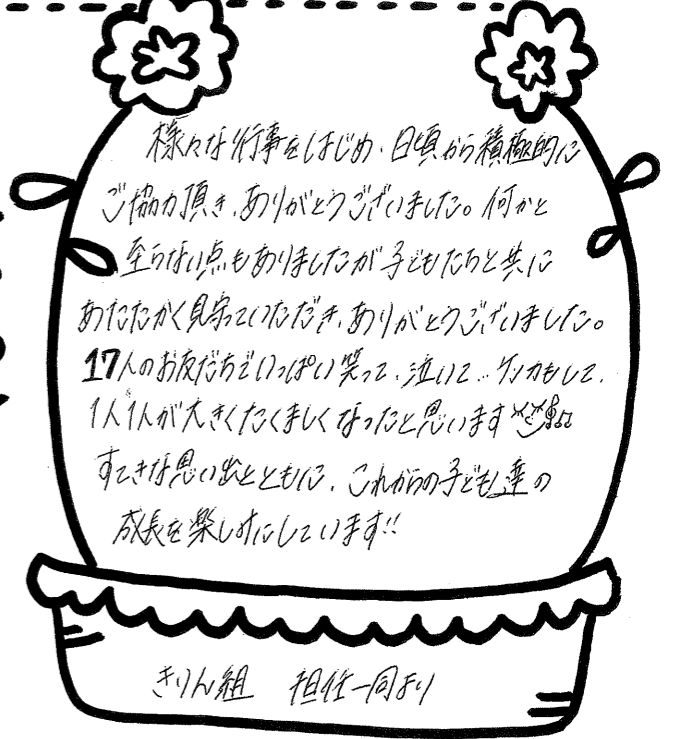 様々な行事をはじめ、日頃から積極的に
ご協力頂き、ありがとうございました。何かと
至らない点もありましたが子どもたちと共に
あたたかく見守っていただき、ありがとうございました。
17人のお友だちでいっぱい笑って、泣いて…ケンカもして、
1人1人が大きくたくましくなったと思います
すてきな思い出とともに、これからの子ども達の
成長を楽しみにしています!!
きりん組 担任一同より